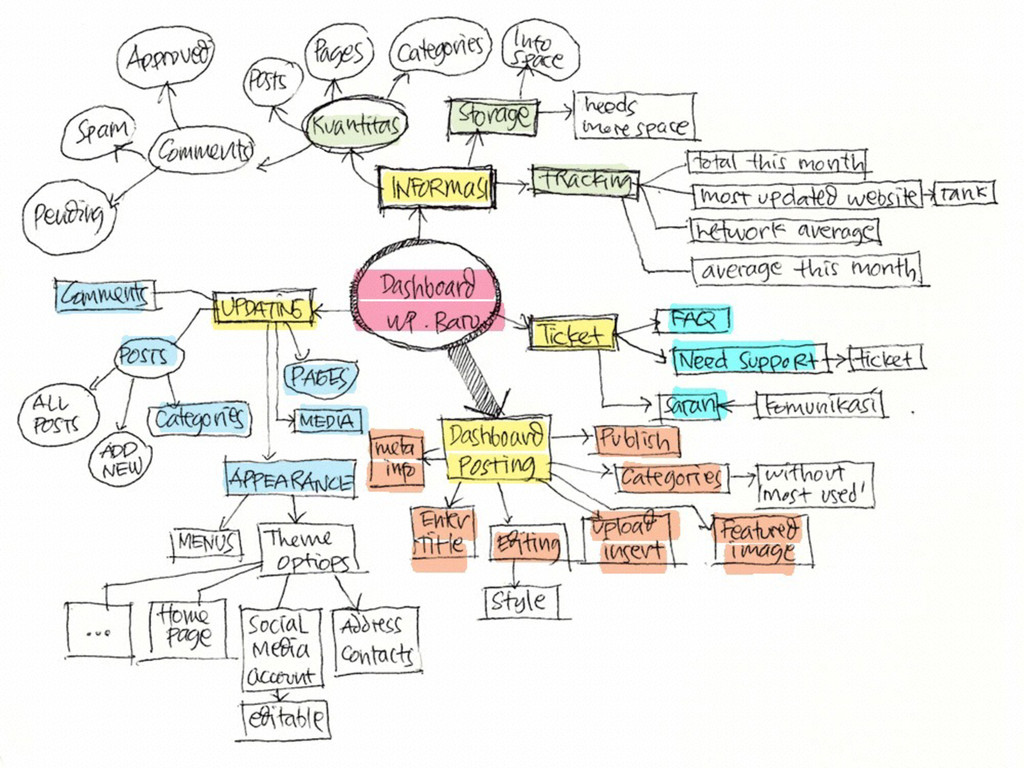 Approved
Pages
Categories
Info
Space
Posts
Spam
Comments
Kuantitas
Storage
needs
more space
Pending
INFORMASI
TRACKING
total this month
most updated website
rank
network average
average this month
Comments
UPDATING
Dashboard
WP. Baru
Ticket
FAQ
Need Support
ticket
saran
komunikasi
POSTS
PAGES
MEDIA
ALL
POSTS
ADD
NEW
Categories
APPEARANCE
meta
info
Dashboard
POSTING
Publish
Categories
without
'most used'
Enter
Title
Editing
Upload
insert
Featured
image
Style
MENUS
Theme
options
...
Home
page
Social
Media
account
Address
Contacts
editable